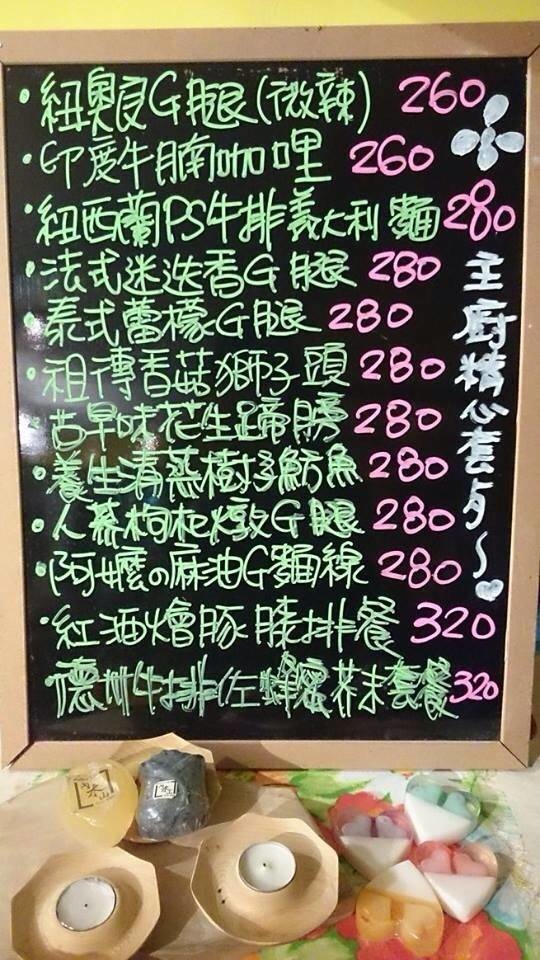 ·紐奧良G腿(微辣) 260
·印度牛腩咖哩 260
·紐西蘭PS牛排義大利麵 280
·法式迷迭香G腿 280
·泰式蕾檬G腿 280
·祖傳香菇獅子頭 280
·古早味花生蹄膀 280
·養生清蒸樹子魴魚 280
·人蔘枸杞燉G腿 280
·阿嬤の麻油G麵線 280
·紅酒燴豚膝排餐 320
·德州牛排佐蜂蜜芥末套餐 320
主廚精心套夕~